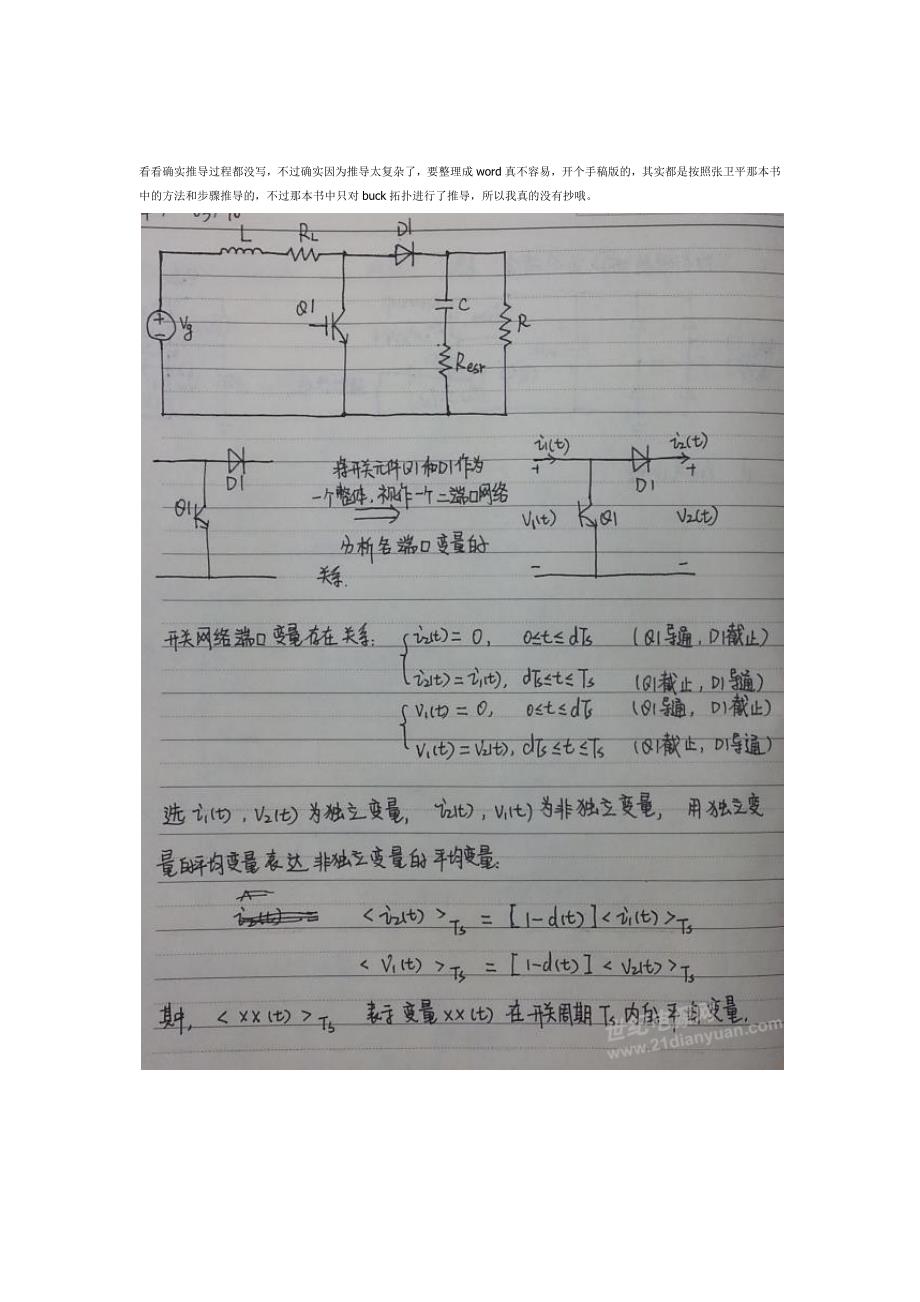 看看确实推导过程都没写，不过确实因为推导太复杂了，要整理成 word 真不容易，开个手稿版的，其实都是按照张卫平那本书
中的方法和步骤推导的，不过那本书中只对 buck 拓扑进行了推导，所以我真的没有抄哦。
L RL D1
Q1 C
Vg R
Resr
i1(t) i2(t)
将开关元件Q1和D1作为
D1 + + D1
一个整体，视作一个二端口网络
Q1 V1(t) Q1 V2(t)
分析各端口变量的
关系.
开关网络端口变量存在关系: i2(t) = 0, 0≤t≤dTs (Q1导通, D1截止)
i2(t) = i1(t), dTs≤t≤Ts (Q1截止, D1导通)
V1(t) = 0, 0≤t≤dTs (Q1导通, D1截止)
V1(t) = V2(t), dTs≤t≤Ts (Q1截止, D1导通)
选 i1(t), V2(t) 为独立变量, i2(t), V1(t) 为非独立变量, 用独立变
量的平均变量表达非独立变量的平均变量:
<i2(t)>Ts = [1-d(t)]<i1(t)>Ts
<V1(t)>Ts = [1-d(t)]<V2(t)>Ts
其中, <xx(t)>Ts 表示变量xx(t) 在开关周期Ts内的平均变量.
www.21dianyuan.com